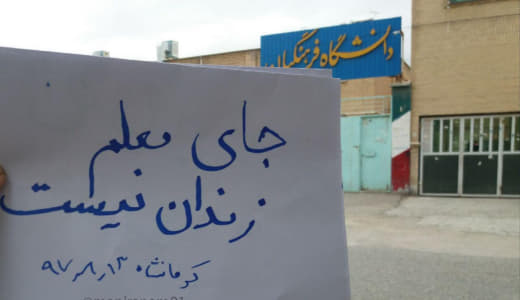 دانشگاه فرهنگیان
جای معلم
زندان نیست
کرمانشاه ۹۷٫۸٫۱۳